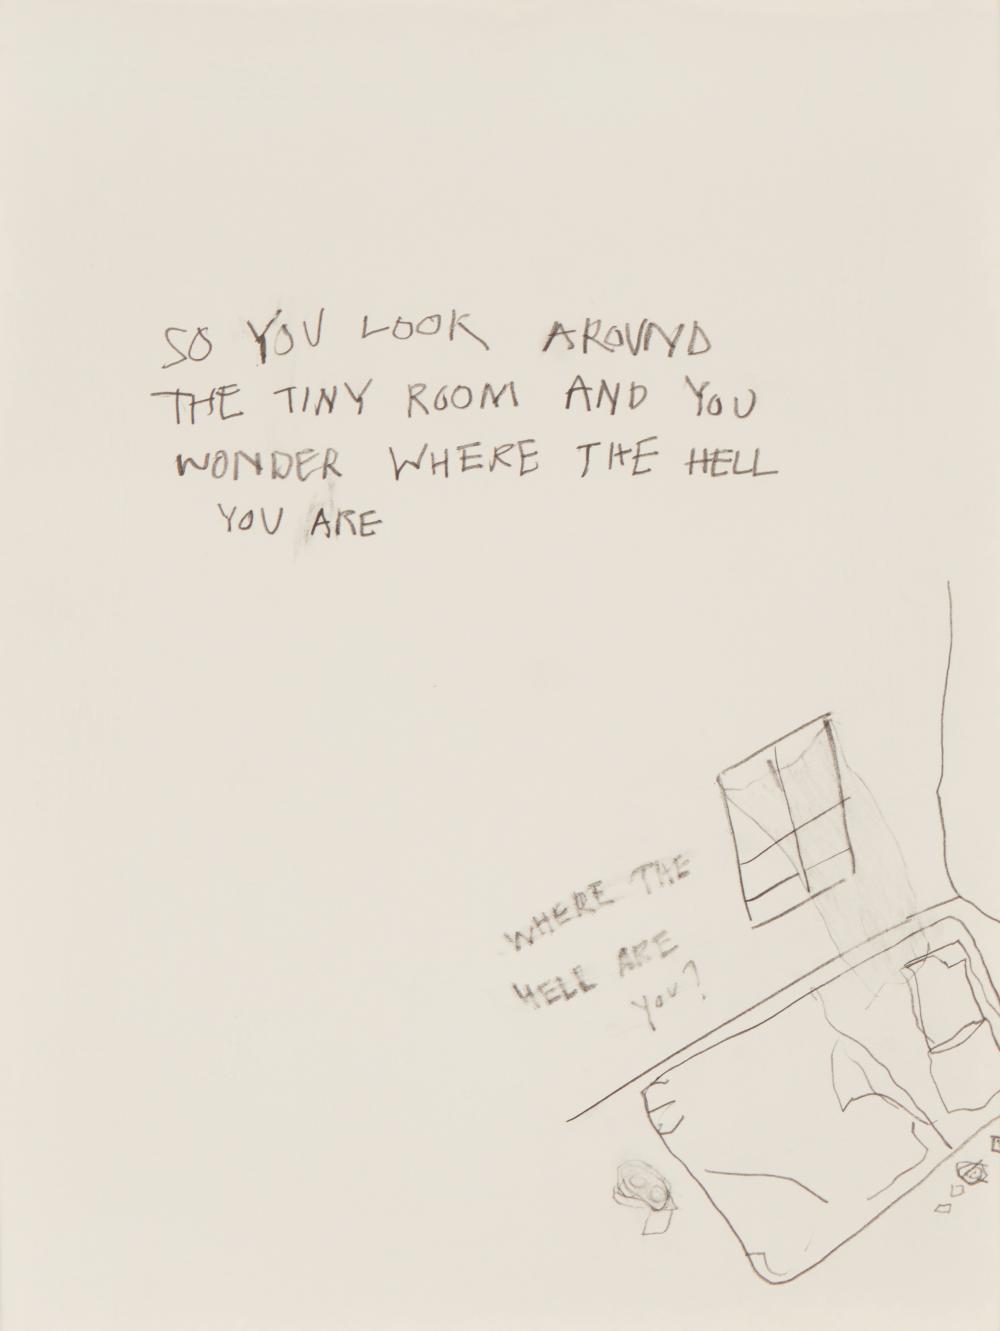 SO YOU LOOK AROUND
THE TINY ROOM AND YOU
WONDER WHERE THE HELL
YOU ARE
WHERE THE
HELL ARE
YOU?